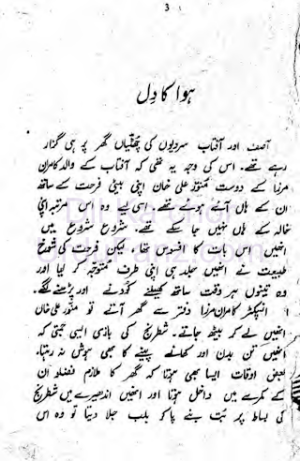 3
ہوا کا دل
آصف اور آفتاب سردیوں کی چھٹیاں گھر پر ہی گزار
رہے تھے۔ اس کی وجہ یہ تھی کہ آفتاب کے والد کامران
مرزا کے دوست منور علی خان اپنی بیٹی فرحت کے ساتھ
ان کے ہاں آئے ہوئے تھے۔ اسی لیے وہ اس مرتبہ اپنی
خالہ کے ہاں نہیں جا سکے تھے۔ شروع شروع میں
انھیں اس بات کا افسوس تھا، لیکن فرحت کی شوخ
طبیعت نے انھیں جلد ہی اپنی طرف متوجہ کر لیا اور
وہ تینوں ہر وقت ساتھ کھیلنے کودنے اور پڑھنے لگے۔
انسپکٹر کامران مرزا دفتر سے گھر آتے تو منور علی خاں
انھیں لے کر بیٹھ جاتے۔ شطرنج کی بازی ایسی جمتی کہ
انھیں تن بدن اور کھانے پینے کا بھی ہوش نہ رہتا۔
بعض اوقات ایسا بھی ہوتا کہ گھر کا ملازم فضلو ان
کے کمرے میں داخل ہوتا اور انھیں اندھیرے میں شطرنج
کی بساط پر بت بنے پا کر بلب جلا دیتا تو وہ اس